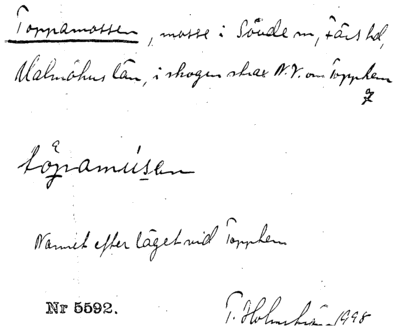 Toppamossen, mosse i Sövde sn, Färs hd,
Malmöhus län, i skogen strax N.V. om Topphem
7
Namnet efter läget vid Topphem
Nr 5592.
T. Holmström 1998